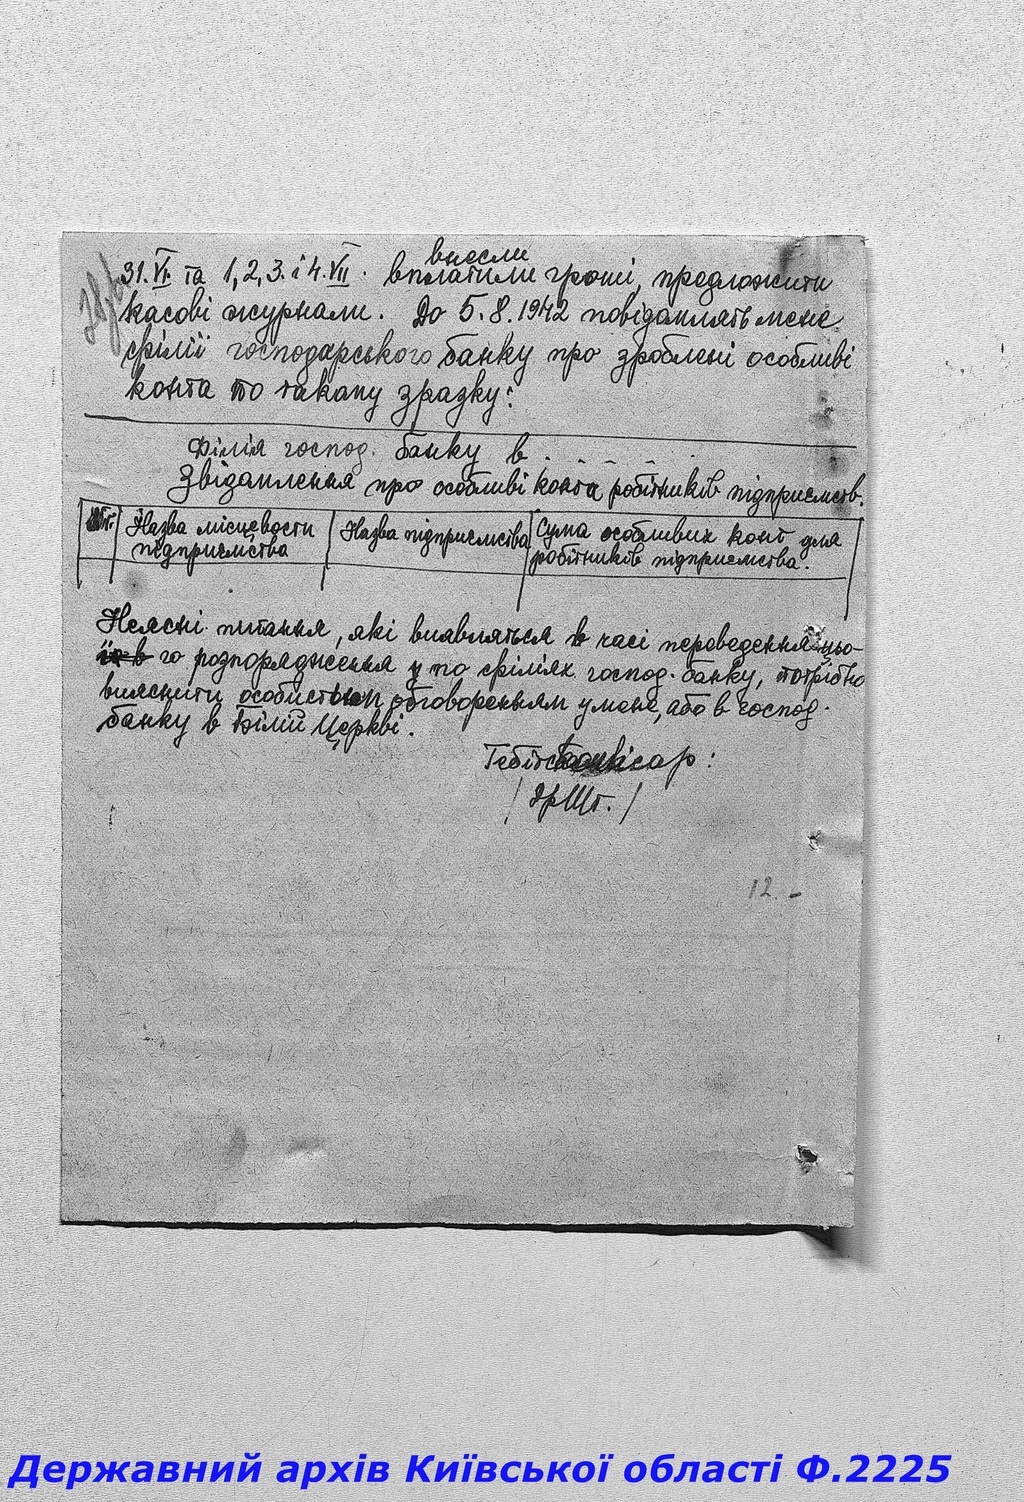 внесли
31.VI та 1, 2, 3. і 4. VII. вплатили гроші, предложити
касові журнали. До 5.8.1942 повідомлять мене
філії господарського банку про зроблені особливі
конта по такому зразку:
Філія господ. банку в . . . . .
Звідамлення про особливі конта робітників підприємств.
Назва місцевости підприємства
Назва підприємства
Сума особливих конт для робітників підприємства.
Неясні питання, які виявляться в часі переведення цьо-
го розпорядження у по філіях господ. банку, потрібно
вияснити особистым обговоренням у мене, або в господ.
банку в Білій Церкві.
Гебітскомісар:
/ др Шт. /
12. -
Державний архів Київської області Ф.2225